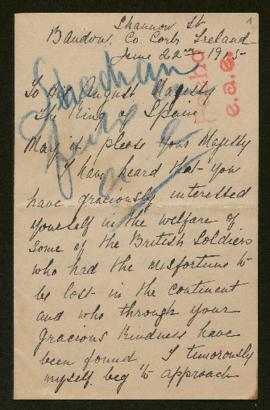 Shannon St
Bandon, Co Cork Ireland
June 22nd 1915-
To His August Majesty
The King of Spain
May it please Your Majesty
I have heard that you
have graciously interested
yourself in the welfare of
some of the British Soldiers
who had the misfortune to
be lost in the continent
and who through your
gracious kindness have
been found I timorously
myself beg to approach
Sheehan